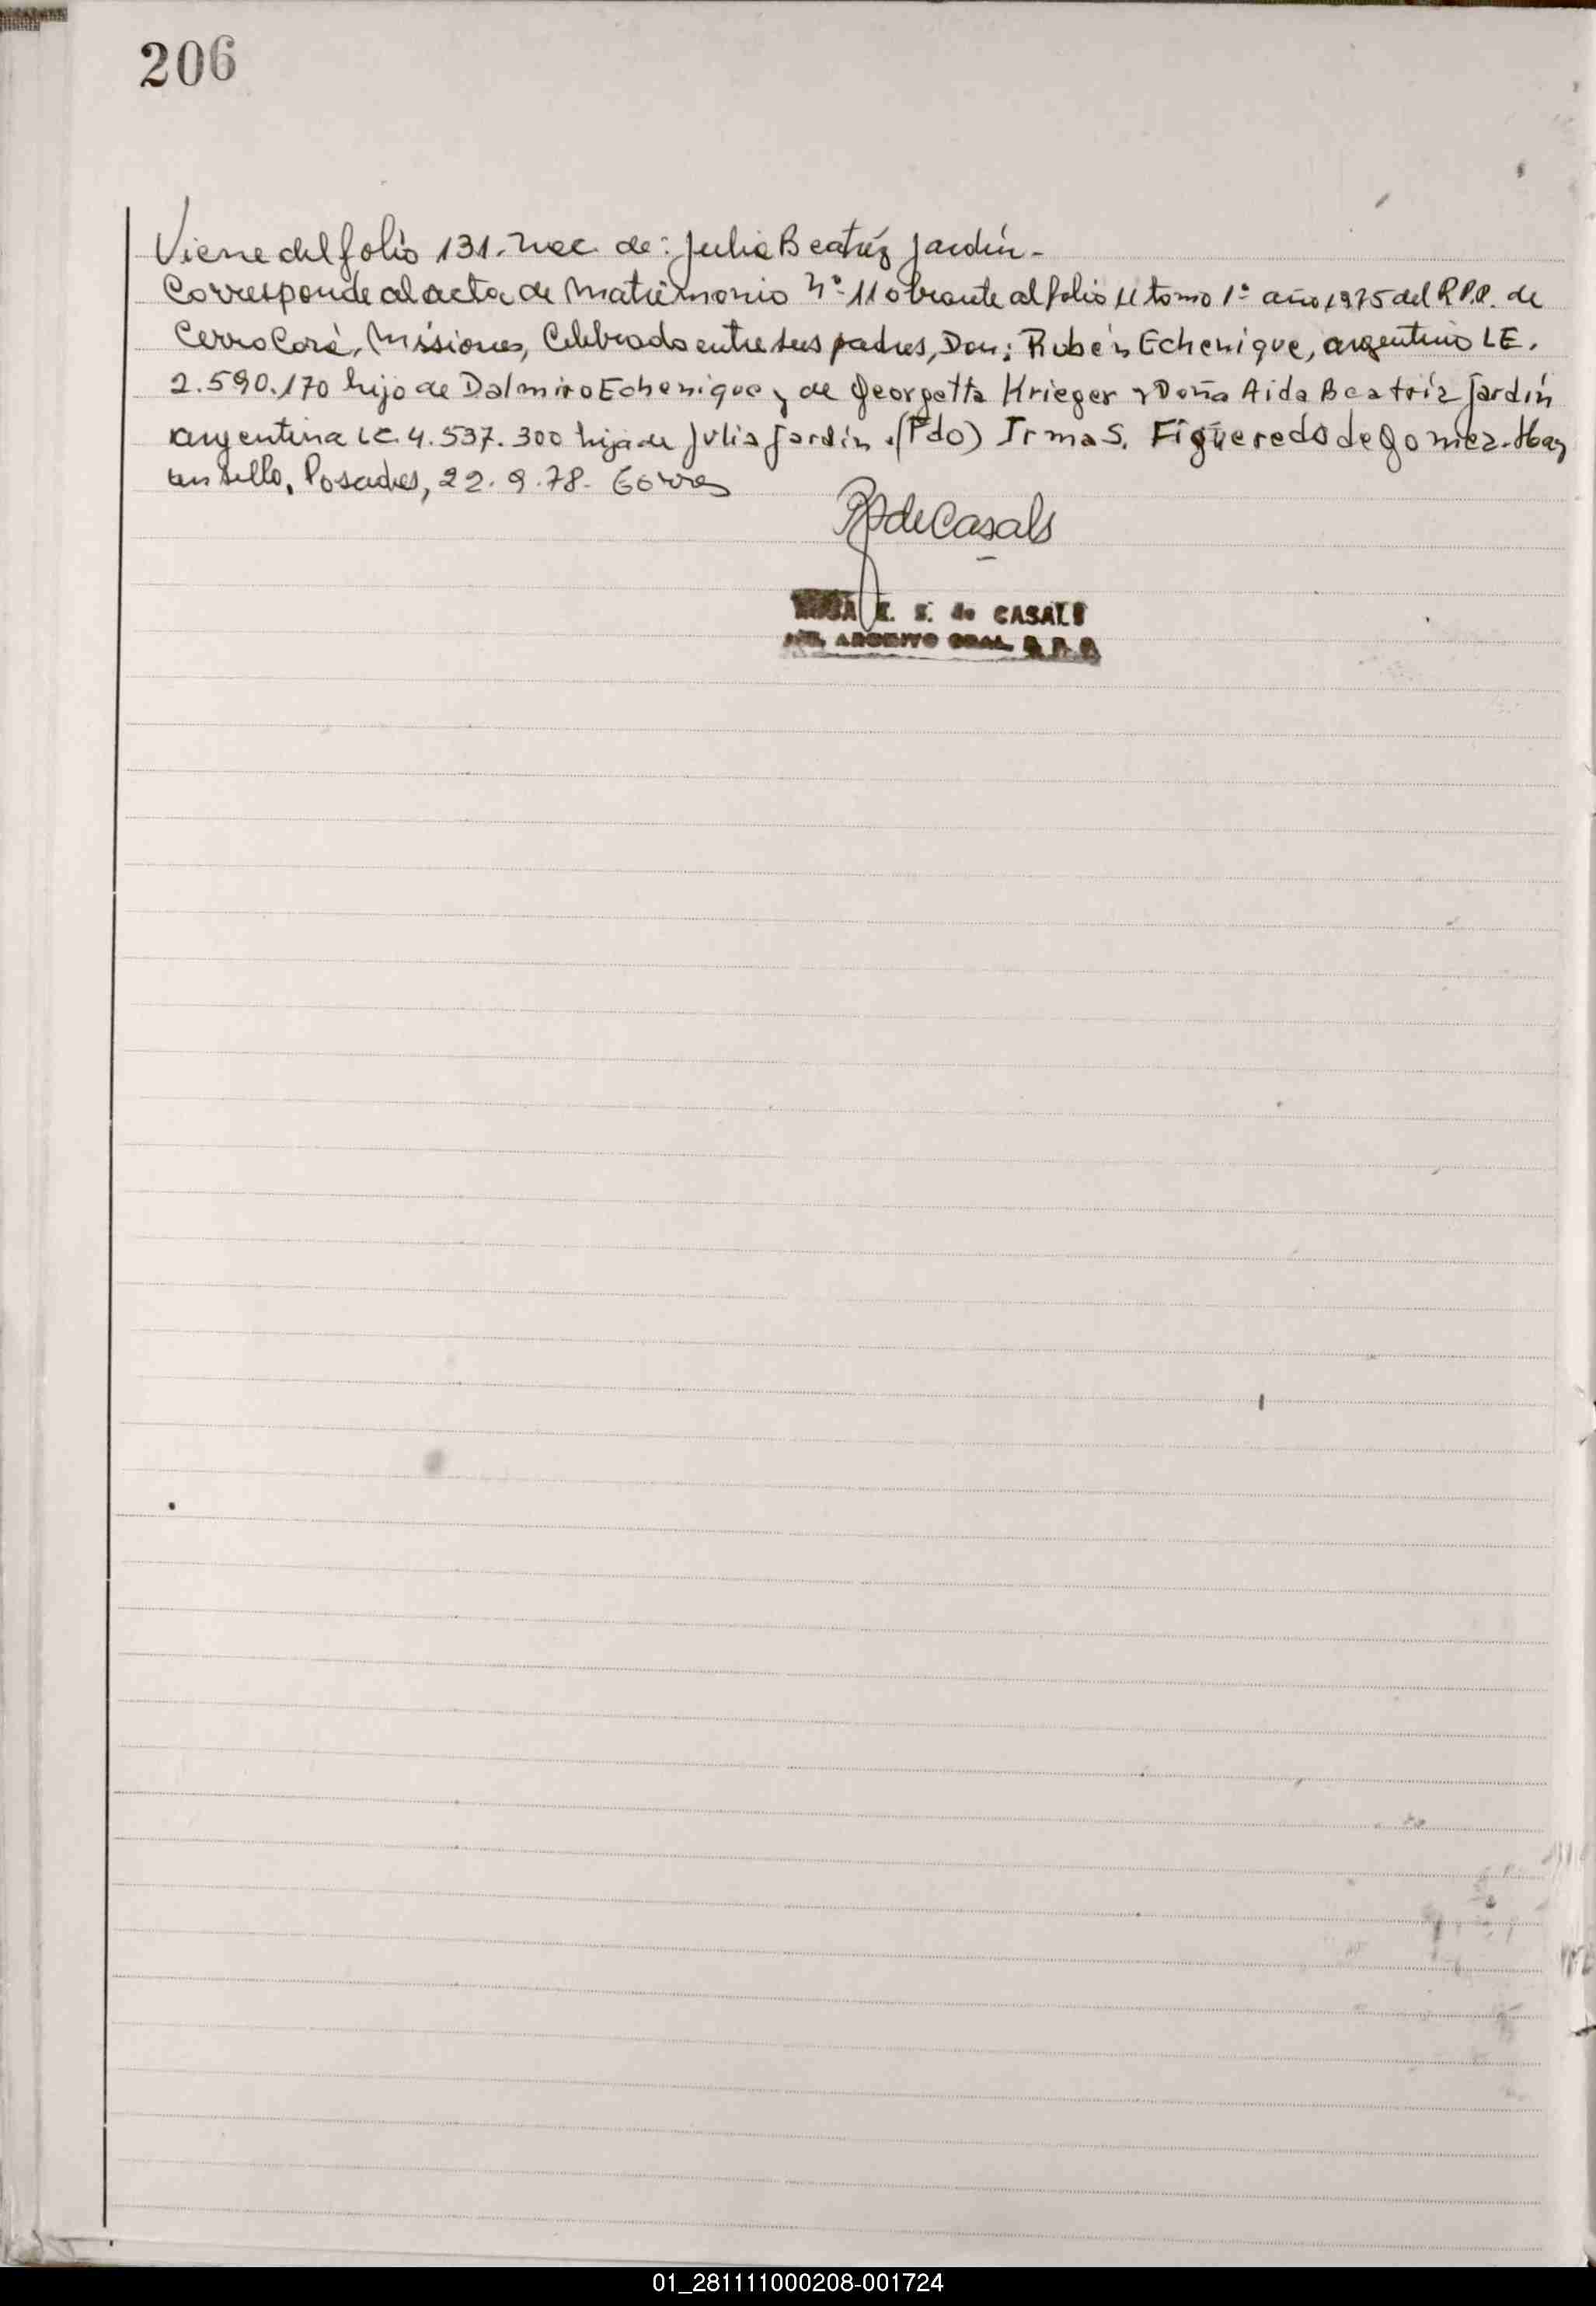 206
Viene del folio 131. Nac. de: Julia Beatríz Jardín.-
Corresponde al acta de Matrimonio Nº 11 obrante al folio 11 tomo 1º año 1975 del R.P.P. de
Cerro Corá, Misiones, Celebrado entre sus padres, Don: Rubén Echenique, argentino L E.
2.590.170 hijo de Dalmiro Echenique y de Georgetta Krieger y Doña Aida Beatríz Jardín
argentina L C. 4.537.300 hija de Julia Jardín. (Fdo) Irma S. Figueredo de Gomez. Hay
un sello. Posadas, 22.9.78.
de Casals
ROSA E. S. de CASALS
ARCHIVO GRAL. R. P. P.
01_281111000208-001724